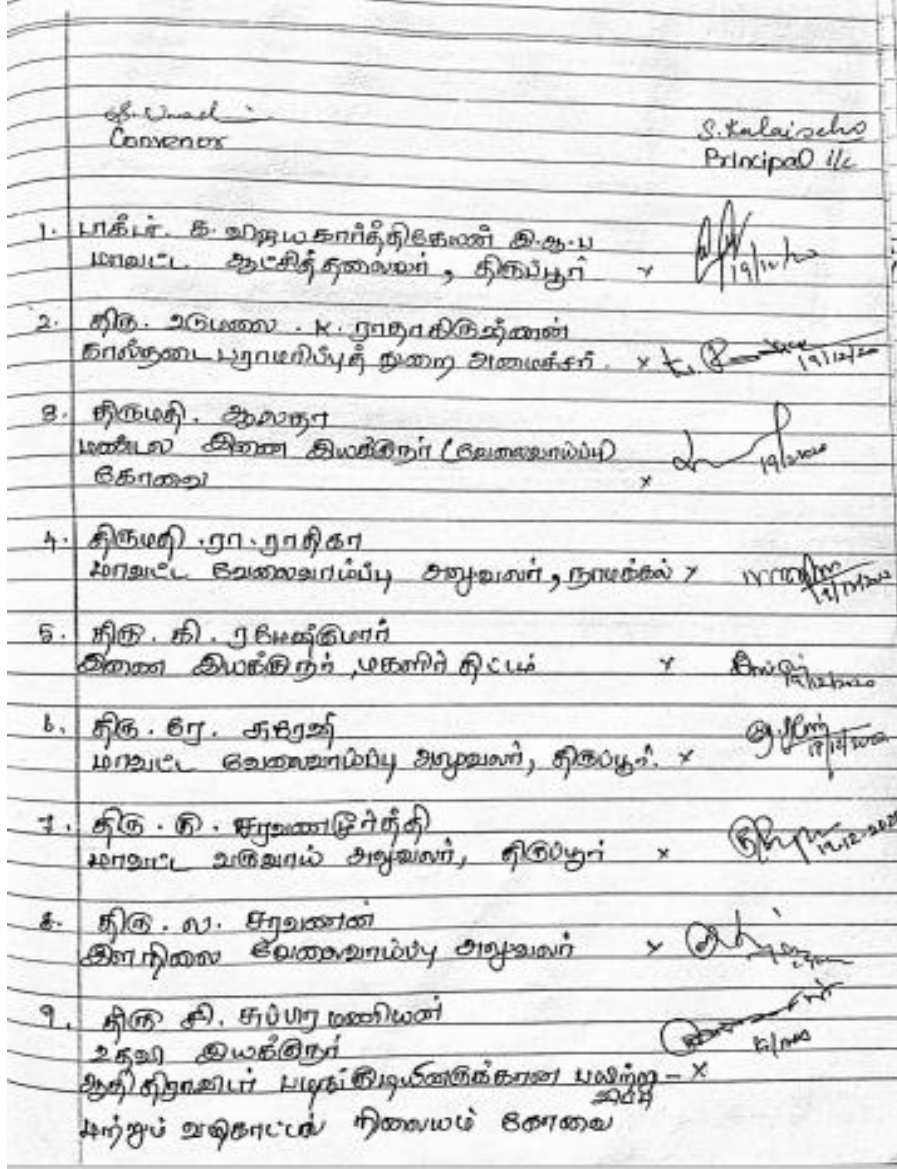 Convenor
S. Kalaiselvi
Principal i/c
1. டாக்டர். க. விஜயகார்த்திகேயன் இ.ஆ.ப
மாவட்ட ஆட்சித்தலைவர், திருப்பூர் x
19/12/20
2. திரு. உடுமலை . K. ராதாகிருஷ்ணன்
கால்நடை பராமரிப்புத் துறை அமைச்சர். x
19/12/20
3. திருமதி. ஆ.லதா
மண்டல இணை இயக்குநர் (வேலைவாய்ப்பு)
கோவை x
19/12/2020
4. திருமதி .ரா. ராதிகா
மாவட்ட வேலைவாய்ப்பு அலுவலர், நாமக்கல் x
19/12/2020
5. திரு. கி. ரமேஷ்குமார்
இணை இயக்குநர், மகளிர் திட்டம் x
19/12/2020
6. திரு. ரே. சுரேஷ்
மாவட்ட வேலைவாய்ப்பு அலுவலர், திருப்பூர். x
7. திரு. கு. சரவணமூர்த்தி
மாவட்ட வருவாய் அலுவலர், திருப்பூர் x
19-12-2020
8. திரு. ல. சரவணன்
இளநிலை வேலைவாய்ப்பு அலுவலர் x
9. திரு கி. சுப்பிரமணியன்
உதவி இயக்குநர்
ஆதி திராவிடர் பழங்குடியினருக்கான பயிற்சி - x
மற்றும் வழிகாட்டல் நிலையம் கோவை